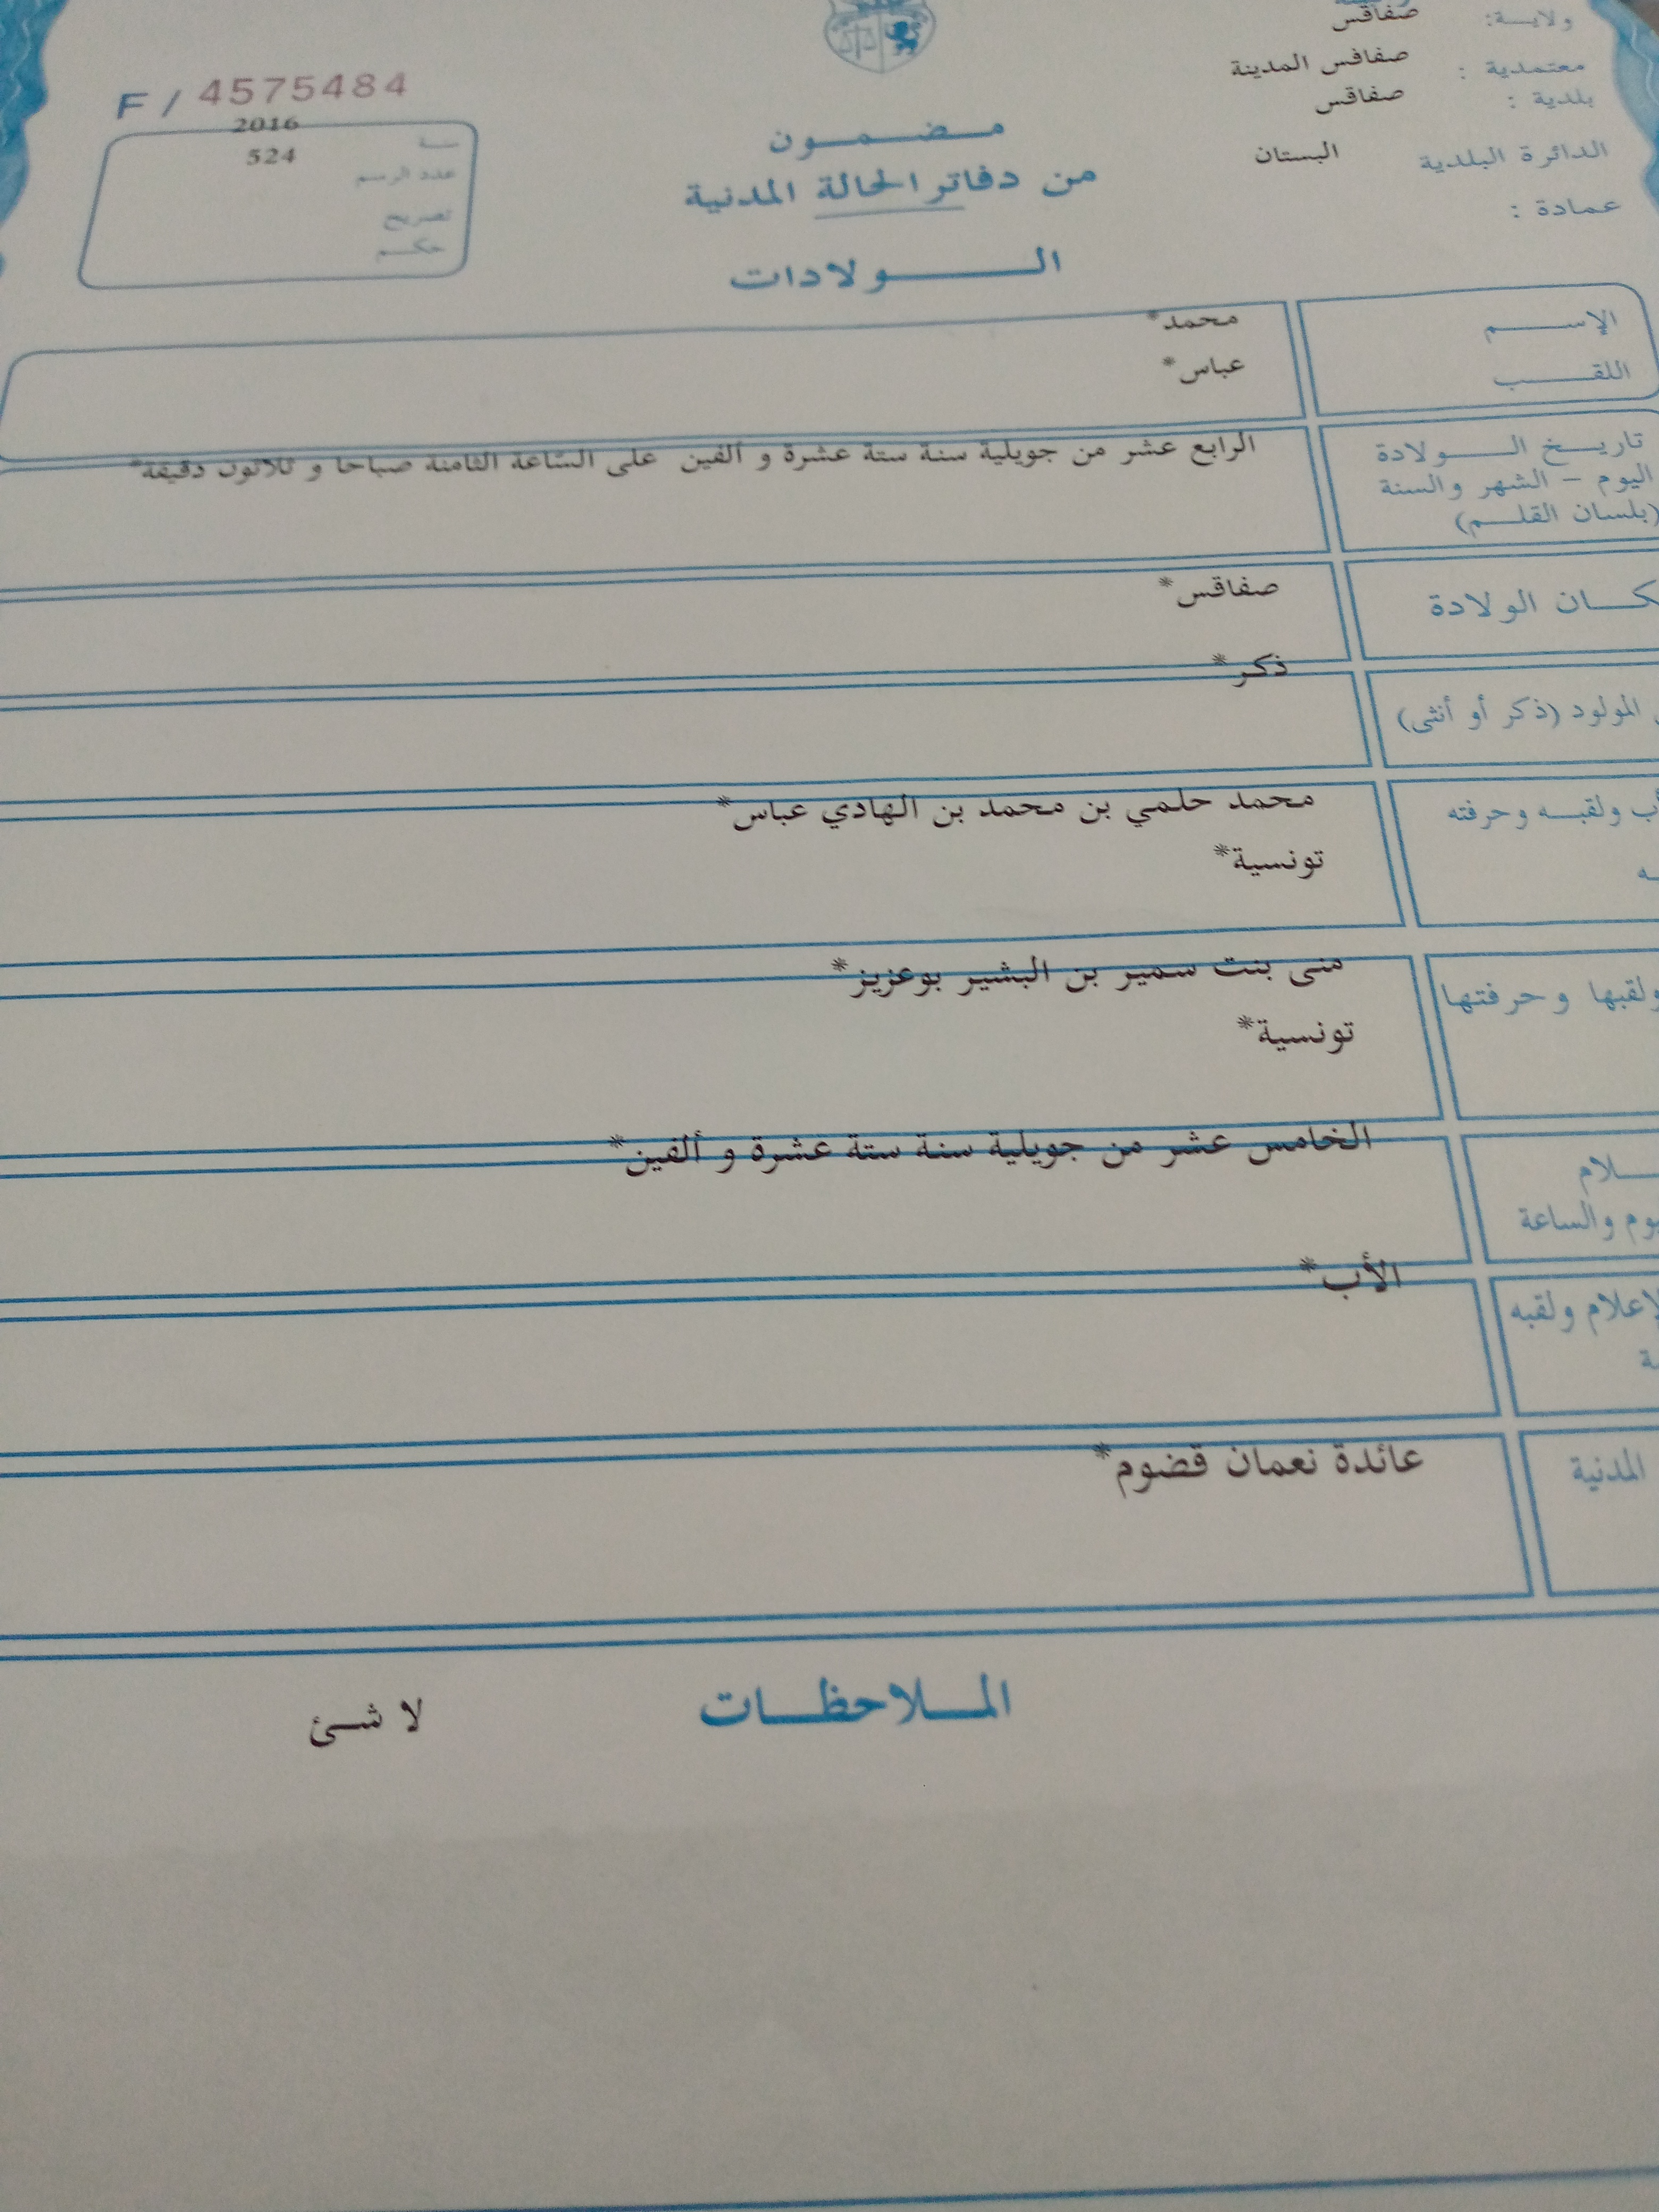 ولاية: صفاقس
معتمدية : صفاقس المدينة
بلدية : صفاقس
الدائرة البلدية البستان
عمادة :
F / 4575484
سنة 2016
عدد الرسم 524
تصريح
حكم
مضمون
من دفاتر الحالة المدنية
الولادات
الإسم محمد*
اللقب عباس*
تاريخ الولادة الرابع عشر من جويلية سنة ستة عشرة و ألفين على الساعة الثامنة صباحا و ثلاثون دقيقة*
اليوم – الشهر والسنة
(بلسان القلم)
الولادة صفاقس*
المولود (ذكر أو أنثى) ذكر*
ولقبه وحرفته محمد حلمي بن محمد بن الهادي عباس*
تونسية*
ولقبها وحرفتها منى بنت سمير بن البشير بوعزيز*
تونسية*
الخامس عشر من جويلية سنة ستة عشرة و ألفين*
والساعة
ولقبه الأب*
المدنية عائدة نعمان قضوم*
الملاحظات
لا شئ